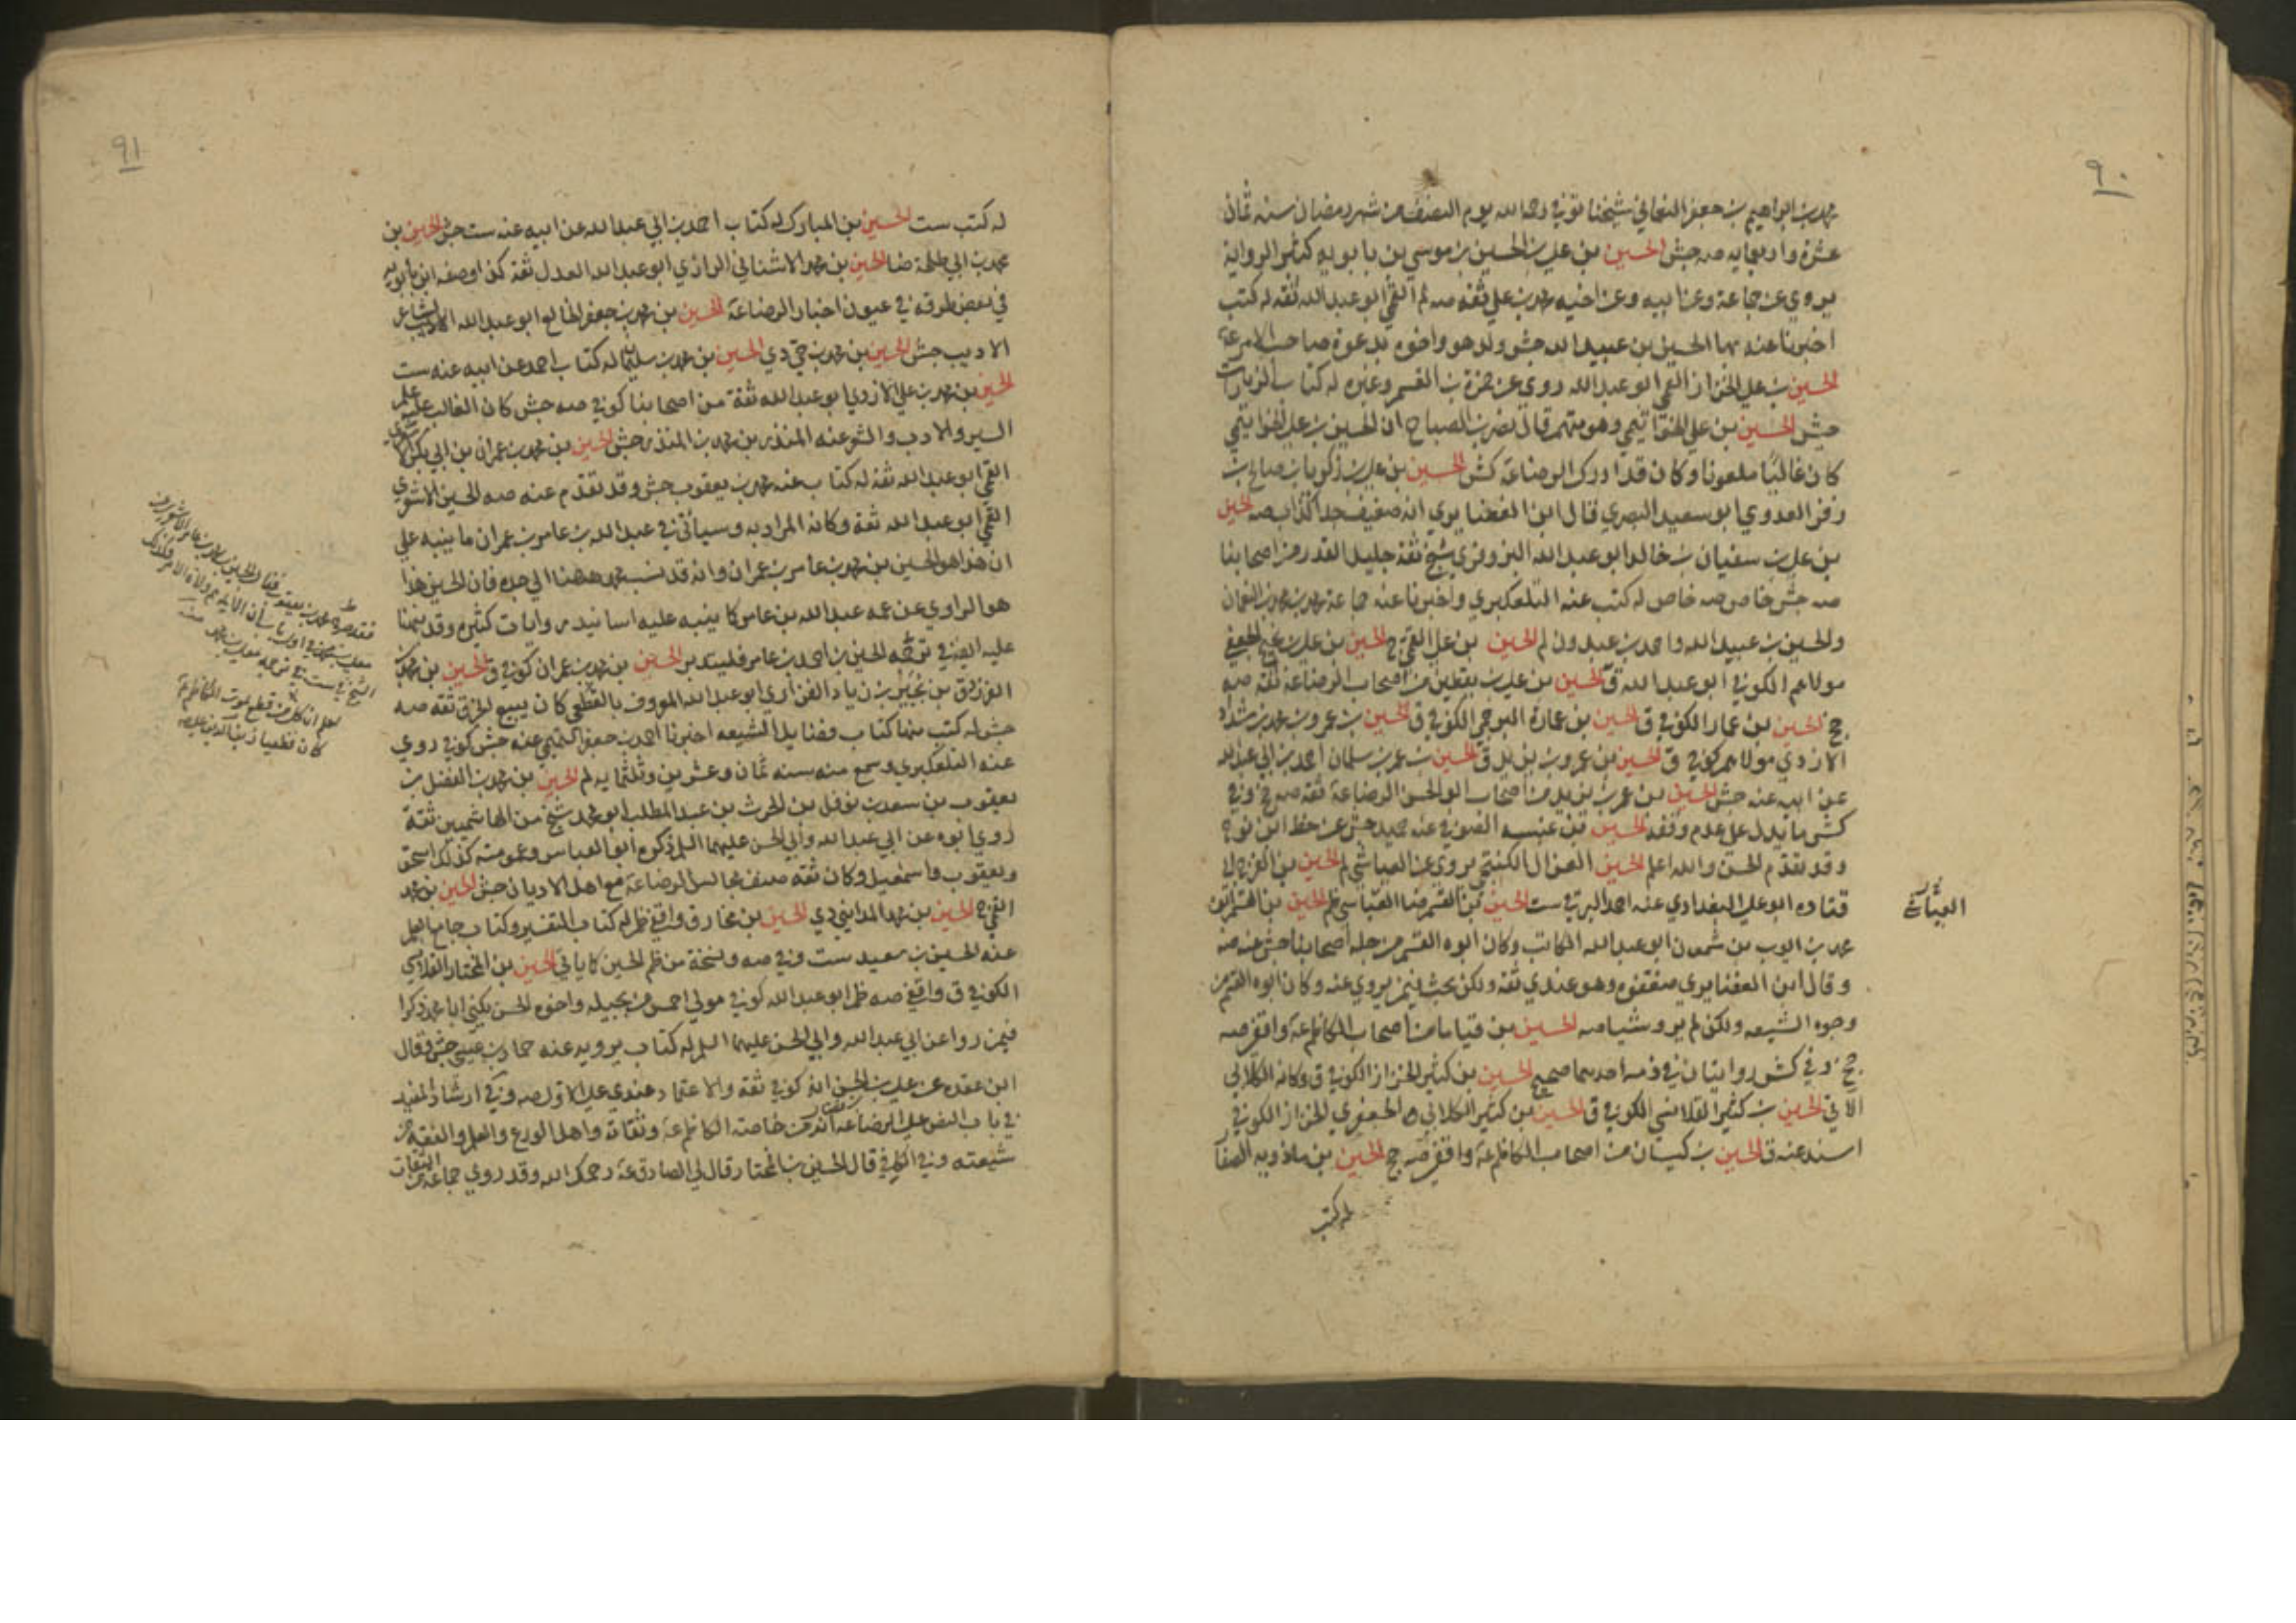 ٩٠
محمد بن ابراهيم بن جعفر النعماني شيخنا توفي رحمه الله يوم النصف من شهر رمضان سنه ثمان
عشرة واربعمايه صه جش الحسين بن علي بن الحسين بن موسي بن بابويه كثير الرواية
يروي عن جماعة وعن ابيه وعن اخيه محمد بن علي ثقه صه لم القمي ابو عبد الله ثقه له كتب
اخبرنا عنه بها الحسين بن عبيد الله جش ولد هو واخوه بدعوة صاحب الامر عة
الحسين بن علي الخزاز القمي ابو عبد الله روي عن حمزة بن القسم وغيره له كتاب الزيارات
جش الحسين بن علي الخواتيمي وهو متهم قال نصر بن الصباح ان الحسين بن علي الخواتيمي
كان غاليا ملعونا وكان قد ادرك الرضا عة كش الحسين بن علي بن زكريا بن صالح بن
زفر العدوي ابو سعيد البصري قال ابن الغضايري انه ضعيف جدا كذاب صه الحسين
بن علي بن سفيان بن خالد ابو عبد الله البزوفري شيخ ثقة جليل القدر من اصحابنا
صه جش خاص صه خاص له كتب عنه التلعكبري واخبرنا عنه جماعة محمد بن محمد بن النعمان
والحسين بن عبيد الله واحمد بن عبدون لم الحسين بن علي القمي ج الحسين بن علي بن نجيح الجعفي
مولاهم الكوفي ابو عبد الله ق الحسين بن علي بن يقطين من اصحاب الرضا عة ثقه صه
جخ الحسين بن عمار الكوفي ق الحسين بن عمارة البرجمي الكوفي ق الحسين بن عمرو بن محمد بن شداد
الازدي مولاهم كوفي ق الحسين بن عمرو بن يزيد ق الحسين بن عمر بن سلمان احمد بن ابي عبد الله
عن ابيه عنه جش الحسين بن عمر بن يزيد من اصحاب ابو الحسن الرضا عة ثقه صه جخ وفي
كش ما يدل علي عدم وقفه الحسين بن عنبسه الصوفي عنه حميد جش عن خط ابن نوح
وقد تقدم الحسن والله اعلم الحسين الغزال الكنتجي يروي عن العياشي لم الحسين بن الفرج
قتاده ابو علي البغدادي عنه احمد البرقي ست الحسين بن القسم ضا العباسي ظم الحسين بن القسم بن
محمد بن ايوب بن شمون ابو عبد الله الكاتب وكان ابوه القسم من جله اصحابنا جش عنه صه
وقال ابن الغضايري ضعفوه وهو عندي ثقه ولكن بحث فيمن يروي عنه وكان ابوه القسم من
وجوه الشيعه ولكن لم يرو شيا صه الحسين بن قياما من اصحاب الكاظم عة واقفي صه
جخ وفي كش روايتان في ذمه احديهما صحيح الحسين بن كثير الخزاز الكوفي ق وكانه الكلابي
الاتي الحسين بن كثير القلانسي الكوفي ق الحسين بن كثير الكلابي الجعفري الخزاز الكوفي
اسند عنه ق الحسين بن كيسان من اصحاب الكاظم عة واقفي صه جخ الحسين بن ماذويه الصفار
له كتب
٩١
له كتب ست الحسين بن المبارك له كتاب احمد بن ابي عبد الله عن ابيه عنه ست جش الحسين بن
محمد بن ابي طلحة ضا الحسين بن محمد الاشناني الرازي ابو عبد الله العدل ثقة كذا وصفه ابن بابويه
في بعض طرقه في عيون اخبار الرضا عة الحسين بن محمد بن جعفر الخالع ابو عبد الله الشاعر
الاديب جش الحسين بن محمد بن حي دي الحسين بن محمد بن سليمان له كتاب احمد عن ابيه عنه ست
الحسين بن محمد بن علي الازدي ابو عبد الله ثقة من اصحابنا كوفي صه جش كان الغالب عليه علم
السير والادب والشعر عنه المنذر بن محمد بن المنذر جش الحسين بن محمد بن عمران بن ابي بكر الاشعري
القمي ابو عبد الله ثقه له كتاب عنه محمد بن يعقوب جش وقد تقدم عنه صه الحسين الاشعري
القمي ابو عبد الله ثقة وكانه المراد به وسياتي في عبد الله بن عامر بن عمران ما ينبه علي
ان هذا هو الحسين بن محمد بن عامر بن عمران وانه قد نسب محمد ههنا الي جده فان الحسين هذا
هو الراوي عن عمه عبد الله بن عامر كما ينبه عليه اسانيد روايات كثيره وقد نبهنا
عليه ايضا في ترجمه الحسين بن احمد بن عامر فليتدبر الحسين بن محمد بن عمران كوفي ق الحسين بن محمد بن
الفرزدق بن بجير بن زياد الفزاري ابو عبد الله المعروف بالقطعي كان يبيع الخرق ثقه صه
جش له كتب منها كتاب فضايل الشيعه اخبرنا احمد بن جعفر التميمي عنه جش كوفي روي
عنه التلعكبري وسمع منه سنه ثمان وعشرين وثلثمايه لم الحسين بن محمد بن الفضل بن
يعقوب بن سعد بن نوفل بن الحرث بن عبد المطلب ابو محمد شيخ من الهاشميين ثقة
روي ابوه عن ابي عبد الله وابي الحسن عليهما السلم ذكره ابو العباس وعمومته كذلك اسحق
ويعقوب واسمعيل وكان ثقه صنف مجالس الرضا عة مع اهل الاديان جش الحسين بن محمد
القمي ج الحسين بن محمد المدايني دي الحسين بن مخارق واقفي ظم له كتاب التفسير وكتاب جامع العلم
عنه الحسين بن سعيد ست وفي صه ونسخة من ظم الحصين كما ياتي الحسين بن المختار القلانسي
الكوفي ق واقفي صه ظم ابو عبد الله كوفي مولي احمس من بجيله واخوه الحسن يكني ابا محمد ذكرا
فيمن روا عن ابي عبد الله وابي الحسن عليهما السلم له كتاب يرويه عنه حماد بن عيسي جش وقال
ابن عقده عن علي بن الحسن انه كوفي ثقه والاعتماد عندي علي الاول صه وفي ارشاد المفيد
في باب النص علي الرضا عة انه من خاصة الكاظم عة وثقاته واهل الورع والعلم والفقه من
شيعته وفي الكافي قال الحسين بن المختار قال لي الصادق عة رحمك الله وقد روي جماعة من الثقات